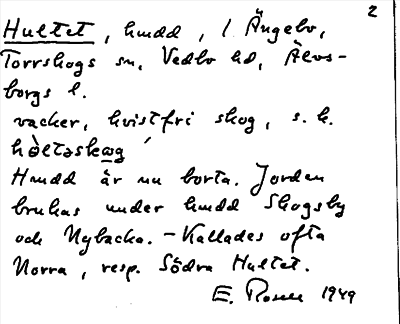 2
Hultet, hmdd, l. Ängebo,
Torrskogs sn, Vedbo hd, Älvs-
borgs l.
vacker, kvistfri skog, s. k.
hòltəskɷg
Hmdd är nu borta. Jorden
brukas under hmdd Skogsby
och Nybacka. – Kallades ofta
Norra, resp. Södra Hultet.
E. Rosell 1949